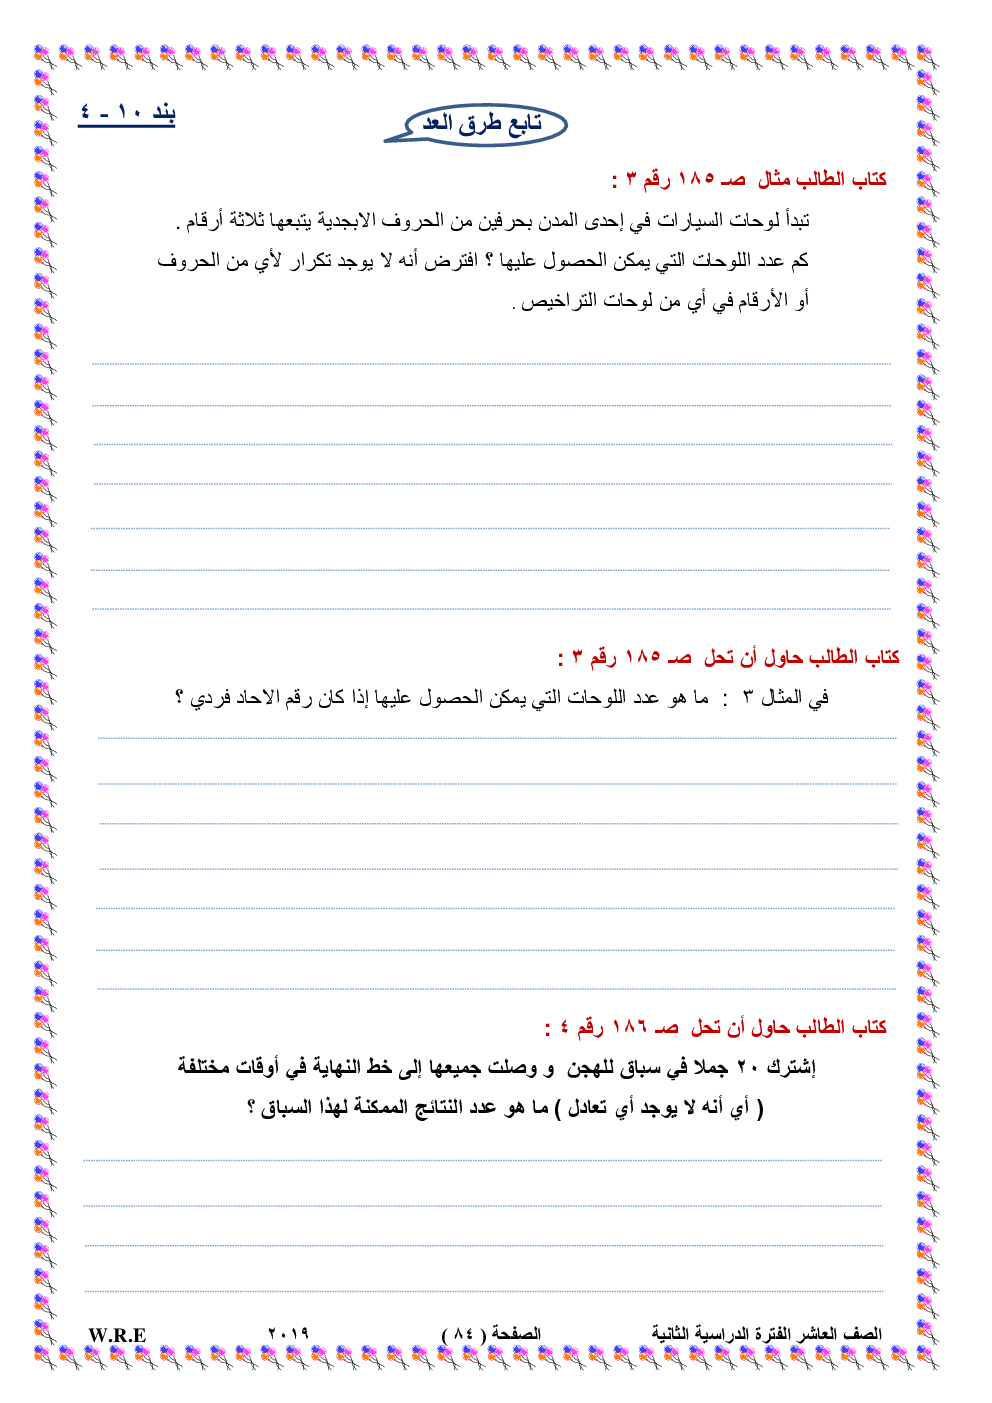 بند ١٠ - ٤
تابع طرق العد
كتاب الطالب مثال صـ ١٨٥ رقم ٣ :
تبدأ لوحات السيارات في إحدى المدن بحرفين من الحروف الابجدية يتبعها ثلاثة أرقام .
كم عدد اللوحات التي يمكن الحصول عليها ؟ افترض أنه لا يوجد تكرار لأي من الحروف
أو الأرقام في أي من لوحات التراخيص .
كتاب الطالب حاول أن تحل صـ ١٨٥ رقم ٣ :
في المثال ٣ : ما هو عدد اللوحات التي يمكن الحصول عليها إذا كان رقم الاحاد فردي ؟
كتاب الطالب حاول أن تحل صـ ١٨٦ رقم ٤ :
إشترك ٢٠ جملا في سباق للهجن و وصلت جميعها إلى خط النهاية في أوقات مختلفة
( أي أنه لا يوجد أي تعادل ) ما هو عدد النتائج الممكنة لهذا السباق ؟
الصف العاشر الفترة الدراسية الثانية الصفحة ( ٨٤ ) ٢٠١٩ W.R.E